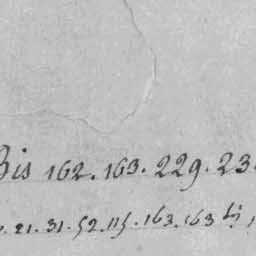 Bis 162. 163. 229. 23
21. 31. 52. 115. 163. 163